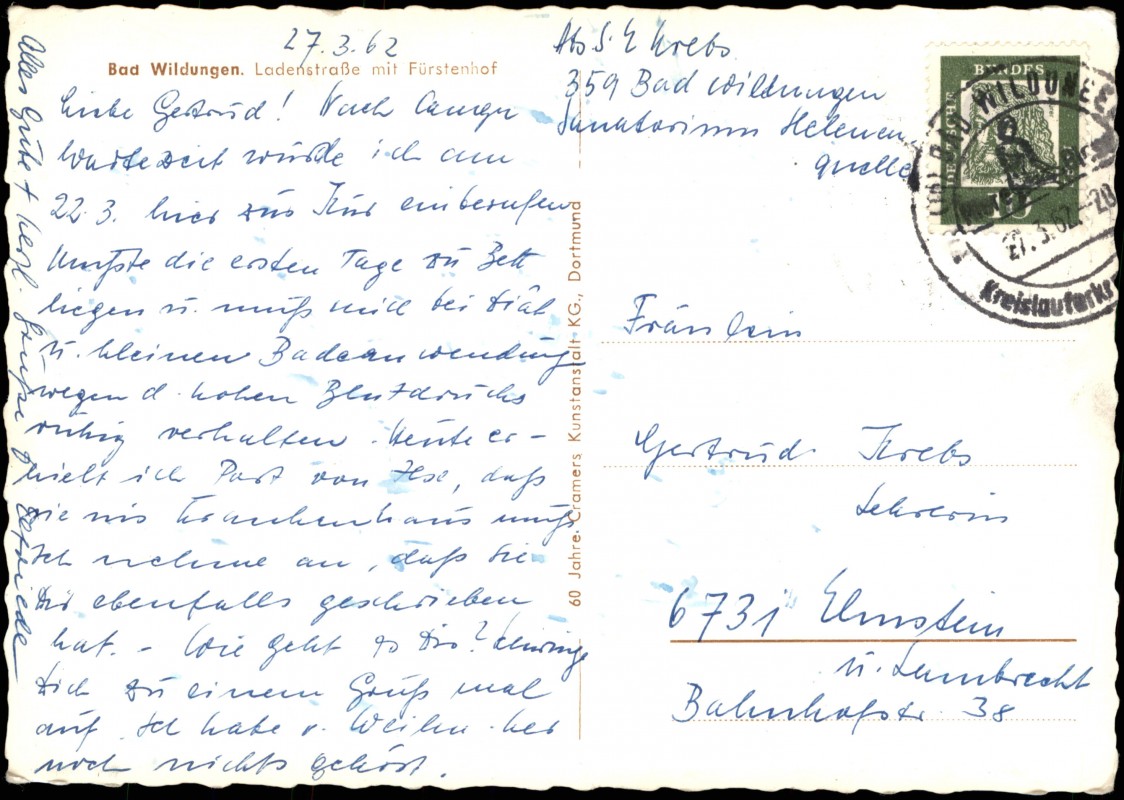 27.3.62
Bad Wildungen. Ladenstraße mit Fürstenhof
Liebe Gertrud! Nach langer
Wartezeit wurde ich am
22.3. hier zur Kur einberufen
Mußte die ersten Tage zu Bett
liegen u. muß mich bei Diät
u. kleinen Badeanwendung
wegen d. hohen Blutdrucks
ruhig verhalten. Heute er-
hielt ich Post von Ilse, daß
sie ins Krankenhaus muß
Ich nehme an, daß sie
Dir ebenfalls geschrieben
hat. - Wie geht es Dir? Schwinge
Dich zu einem Gruß mal
auf. Ich habe v. Weihn. her
noch nichts gehört.
Alles Gute + herzl. Grüße
Elfriede
60 Jahre Cramers Kunstanstalt KG., Dortmund
Abs S. E Krebs
359 Bad Wildungen
Sanatorium Helenen
quelle
DEUTSCHE
BUNDES
10
BAD WILDUNGEN
27.3.62.-20
Kreislauferkr
Fräulein
Gertrud Krebs
Lehrerin
6731 Elmstein
ü. Lambrecht
Bahnhofstr. 38